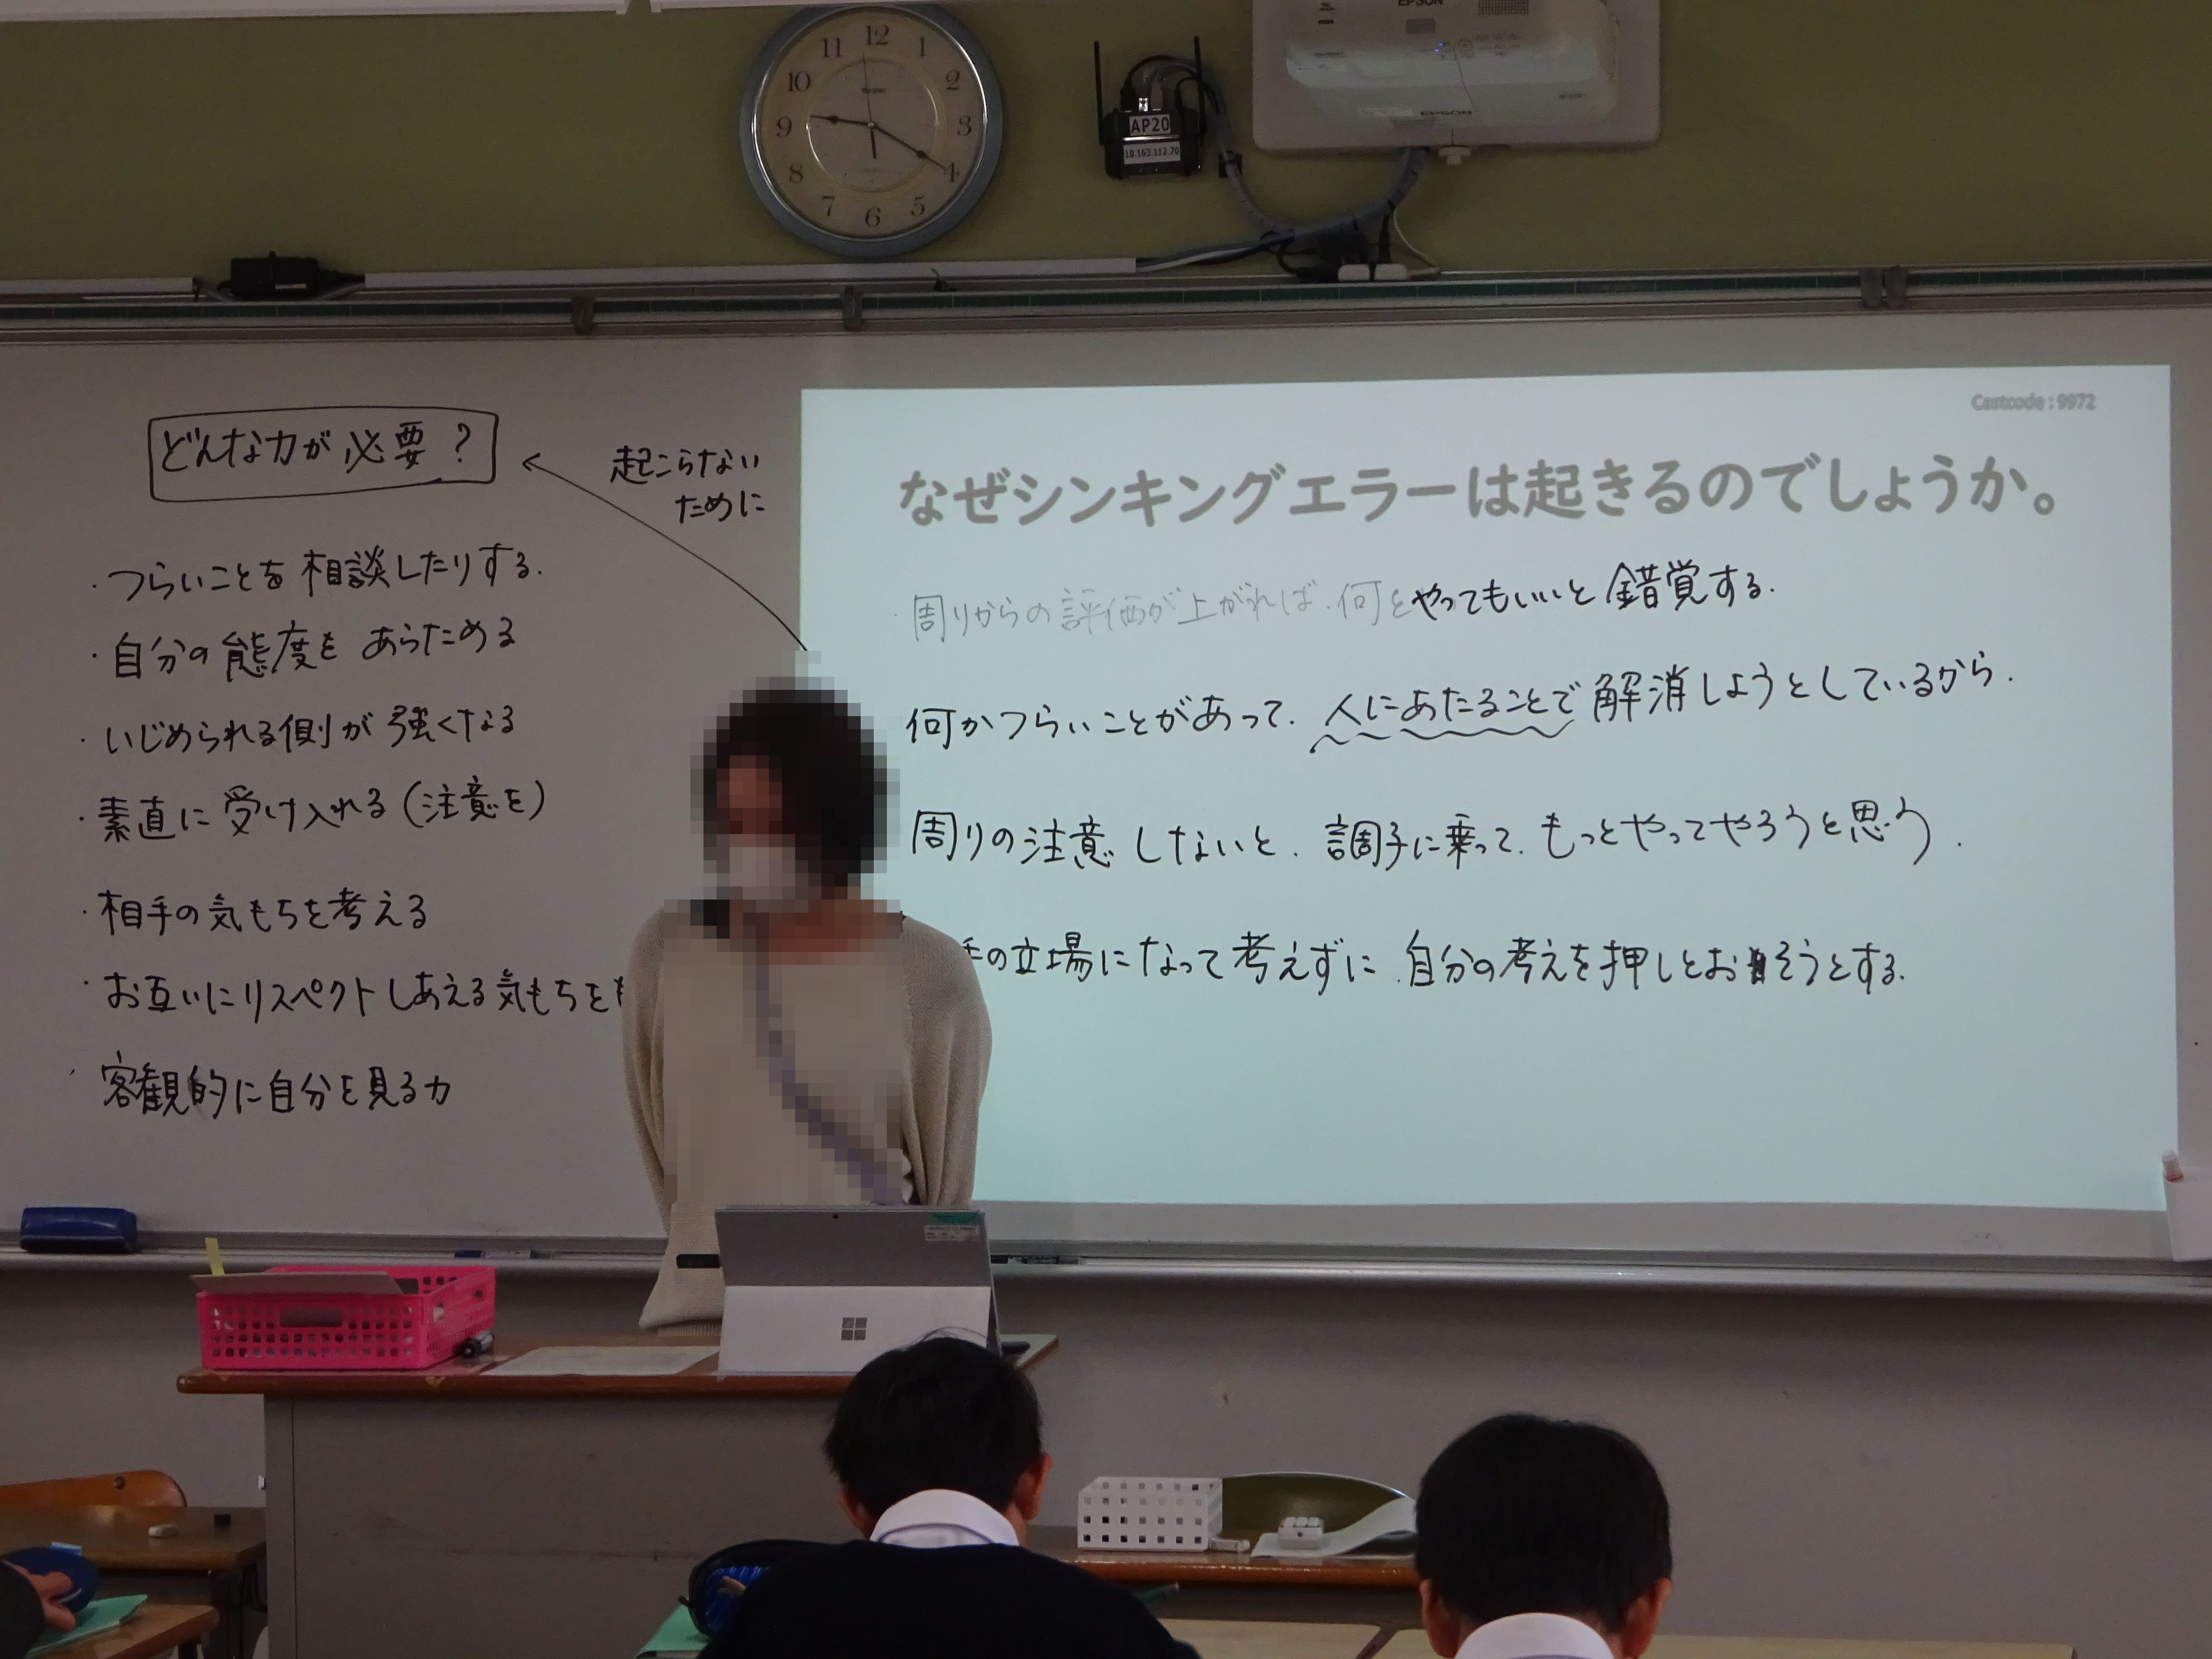 12
11
1
10
2
9
3
8
4
7
5
6
AP20
10.163.112.70
EPSON
EPSON
Castcode : 9972
どんな力が必要?
起こらない
ために
・つらいことを相談したりする.
・自分の態度をあらためる
・いじめられる側が強くなる
・素直に受け入れる(注意を)
・相手の気もちを考える
・お互いにリスペクトしあえる気もちを
・客観的に自分を見る力
なぜシンキングエラーは起きるのでしょうか。
・周りからの評価が上がれば、何をやってもいいと錯覚する.
何かつらいことがあって、人にあたることで解消しようとしているから.
周りの注意しないと、調子に乗って、もっとやってやろうと思う.
手の立場になって考えずに、自分の考えを押しとおそうとする.